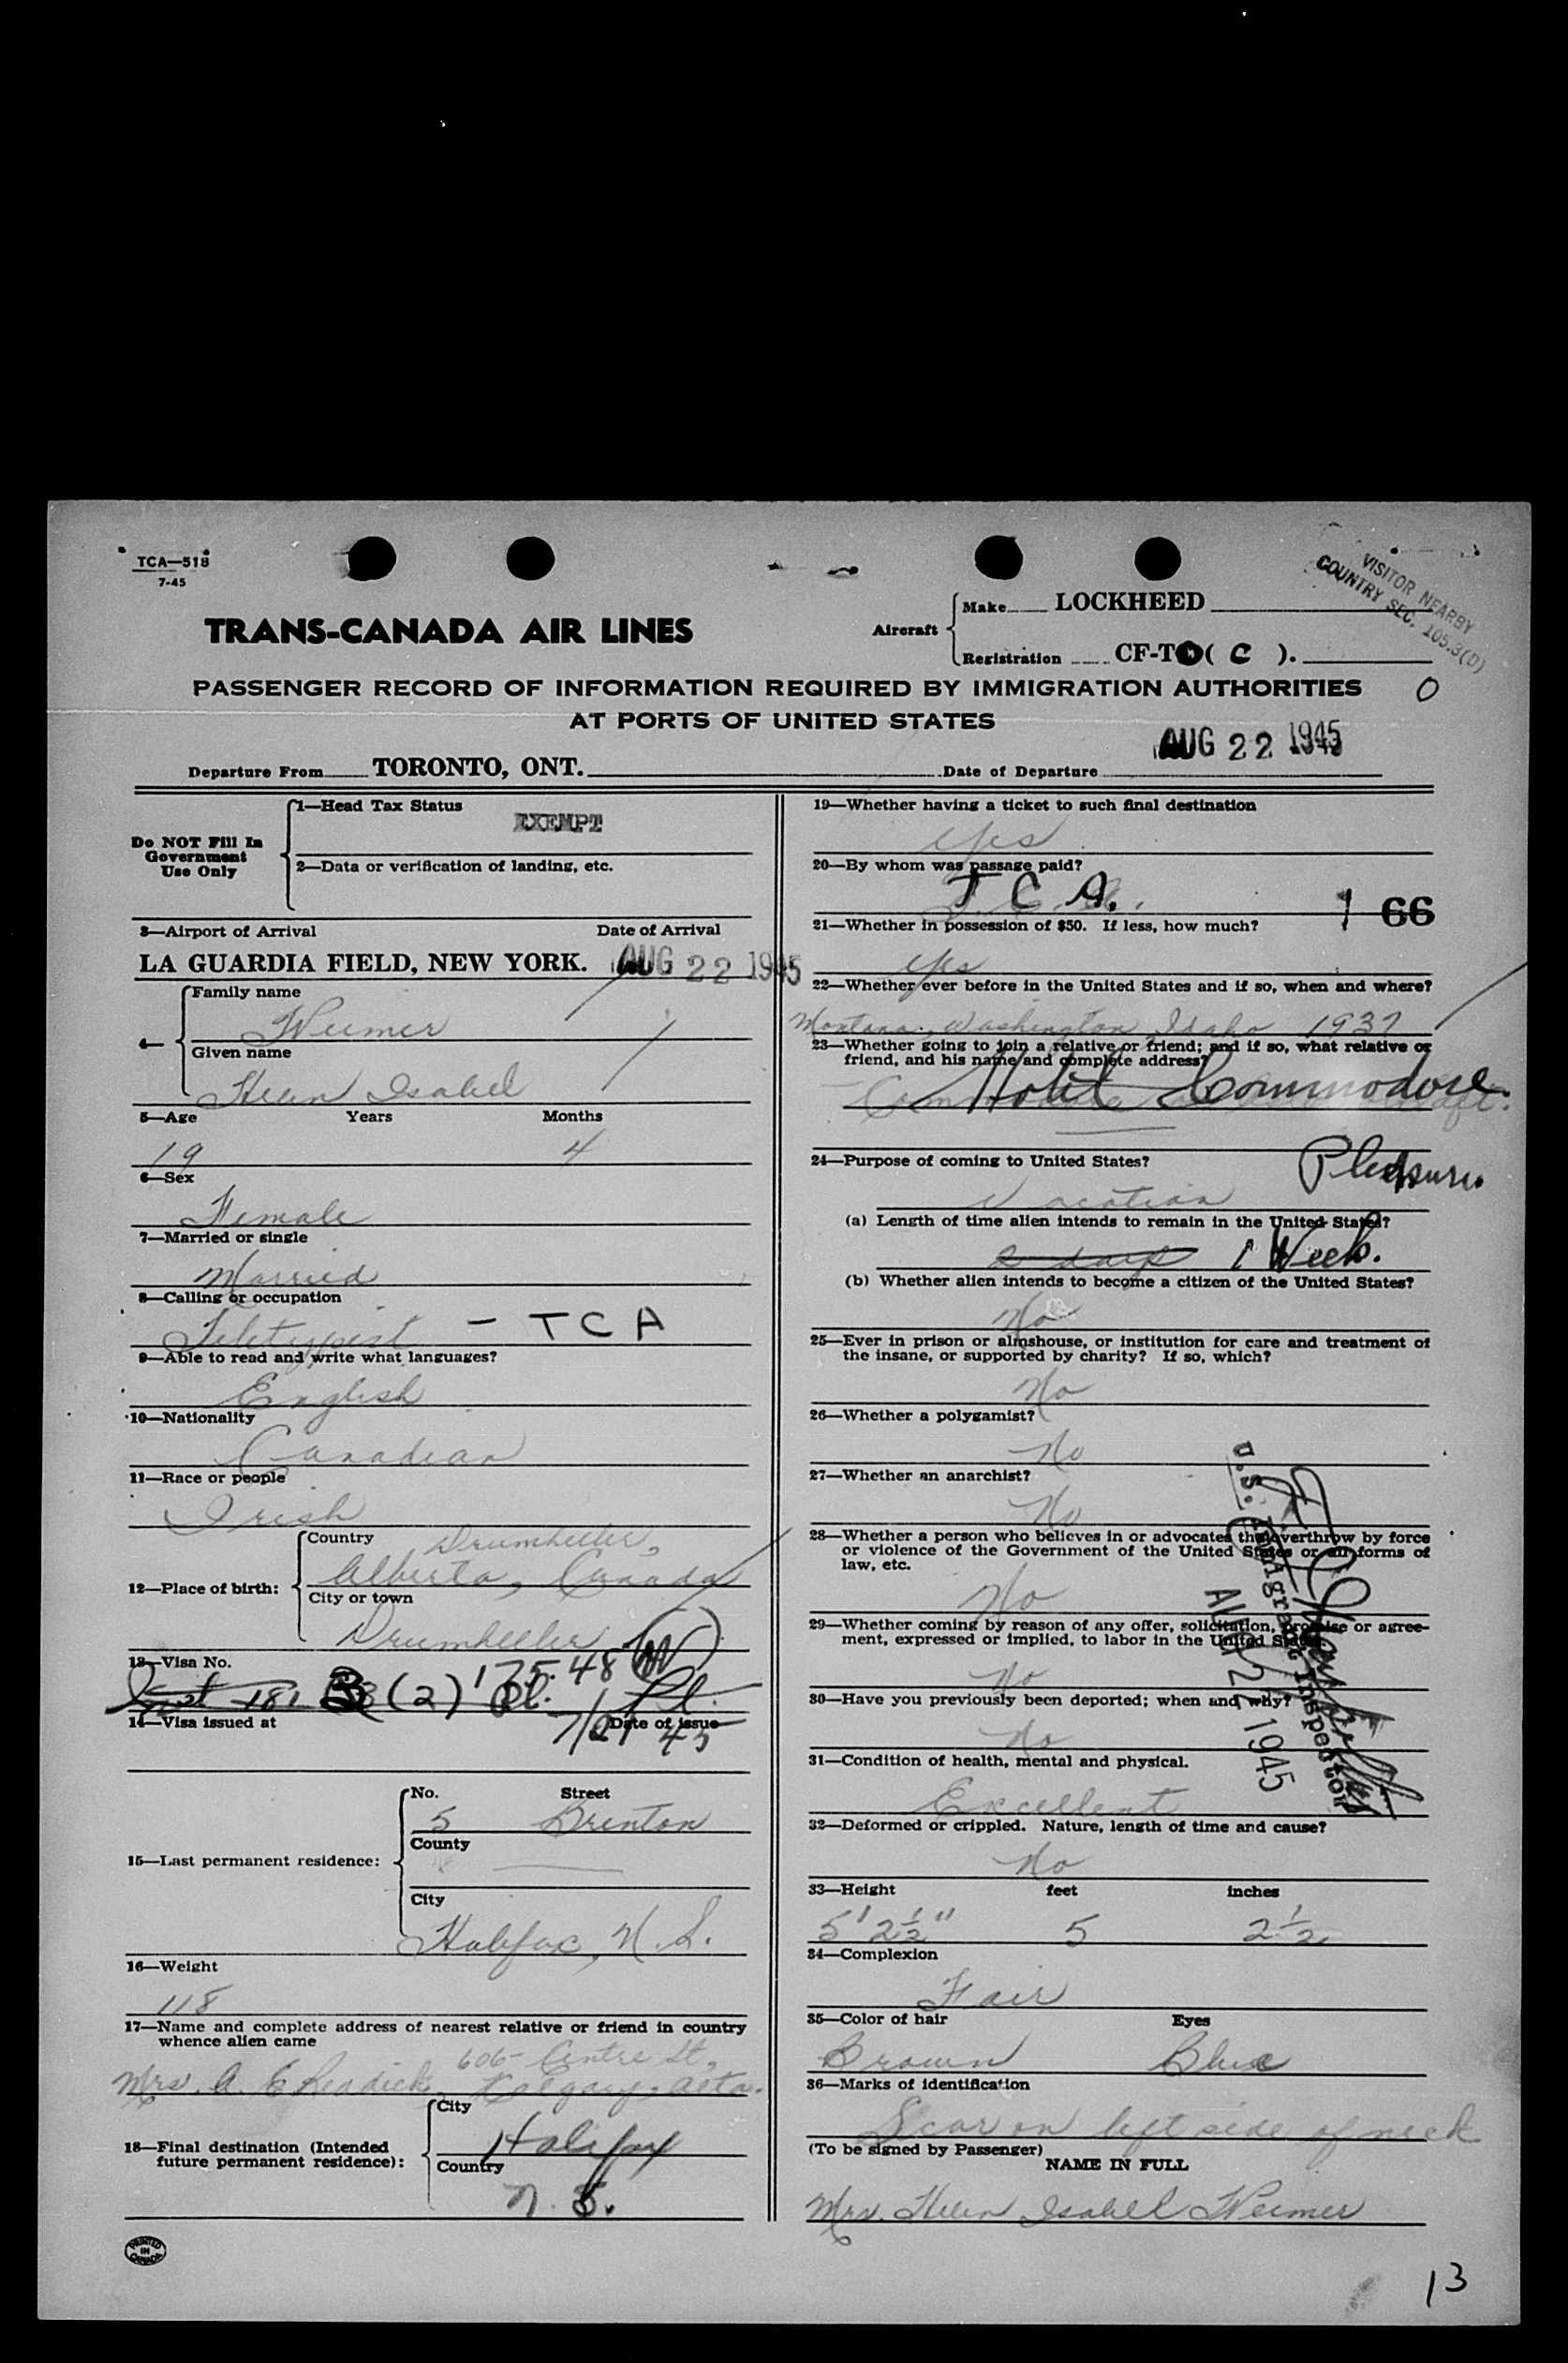 TCA—518
7-45
VISITOR NEARBY
COUNTRY SEC. 105.3(D)
TRANS-CANADA AIR LINES
Aircraft
Make LOCKHEED
Registration CF-T ( C ).
PASSENGER RECORD OF INFORMATION REQUIRED BY IMMIGRATION AUTHORITIES
O
AT PORTS OF UNITED STATES
Departure From TORONTO, ONT. Date of Departure AUG 22 1945
Do NOT Fill In
Government
Use Only
1—Head Tax Status
EXEMPT
2—Data or verification of landing, etc.
3—Airport of Arrival Date of Arrival
LA GUARDIA FIELD, NEW YORK. AUG 22 1945
4—
Family name
Weimer
Given name
Helen Isabel
5—Age Years Months
19 4
6—Sex
Female
7—Married or single
Married
8—Calling or occupation
Teletypist - TCA
9—Able to read and write what languages?
English
10—Nationality
Canadian
11—Race or people
Irish
12—Place of birth:
Country Drumheller,
Alberta, Canada
City or town
Drumheller
13—Visa No.
3 (2) 175.48
14—Visa issued at Date of issue
15—Last permanent residence:
No. Street
5 Brenton
County
City
Halifax, N.S.
16—Weight
118
17—Name and complete address of nearest relative or friend in country
whence alien came
606- Centre St,
Mrs. A. E Readick, Calgary, Alta.
18—Final destination (Intended
future permanent residence):
City
Halifax
Country
N. S.
PRINTED
IN
CANADA
19—Whether having a ticket to such final destination
Yes
20—By whom was passage paid?
T C A.
1 66
21—Whether in possession of $50. If less, how much?
Yes
22—Whether ever before in the United States and if so, when and where?
Montana, Washington, Idaho 1937
23—Whether going to join a relative or friend; and if so, what relative or
friend, and his name and complete address?
Hotel Commodore
24—Purpose of coming to United States?
Pleasure.
Vacation
(a) Length of time alien intends to remain in the United States?
2 days 1 Week.
(b) Whether alien intends to become a citizen of the United States?
No
25—Ever in prison or almshouse, or institution for care and treatment of
the insane, or supported by charity? If so, which?
No
26—Whether a polygamist?
No
27—Whether an anarchist?
No
28—Whether a person who believes in or advocates the overthrow by force
or violence of the Government of the United States or all forms of
law, etc.
No
29—Whether coming by reason of any offer, solicitation, promise or agree-
ment, expressed or implied, to labor in the United States.
No
U.S. Immigrant Inspector
AUG 22 1945
30—Have you previously been deported; when and why?
No
31—Condition of health, mental and physical.
Excellent
32—Deformed or crippled. Nature, length of time and cause?
No
33—Height feet inches
5' 2½" 5 2½
34—Complexion
Fair
35—Color of hair Eyes
Brown Blue
36—Marks of identification
Scar on left side of neck
(To be signed by Passenger)
NAME IN FULL
Mrs. Helen Isabel Weimer
13